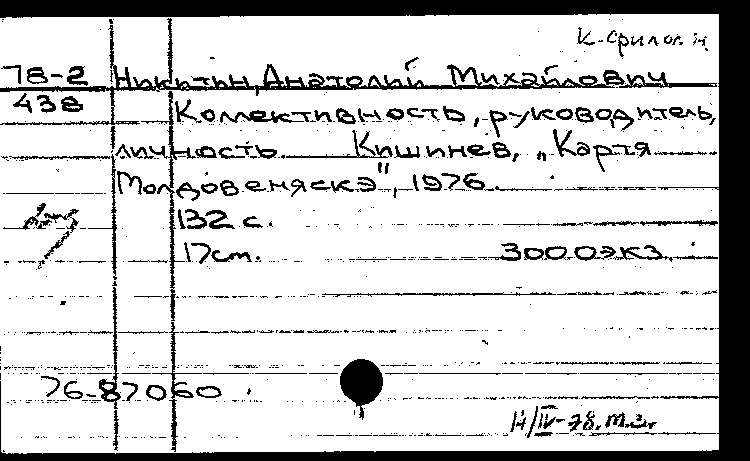 78-2 Никитин, Анатолий Михайлович
438 Коллективность, руководитель,
личность. Кишинев, „Картя
Молдовеняскэ", 1976.
132 с.
17 см. 3000 экз.
76-87060